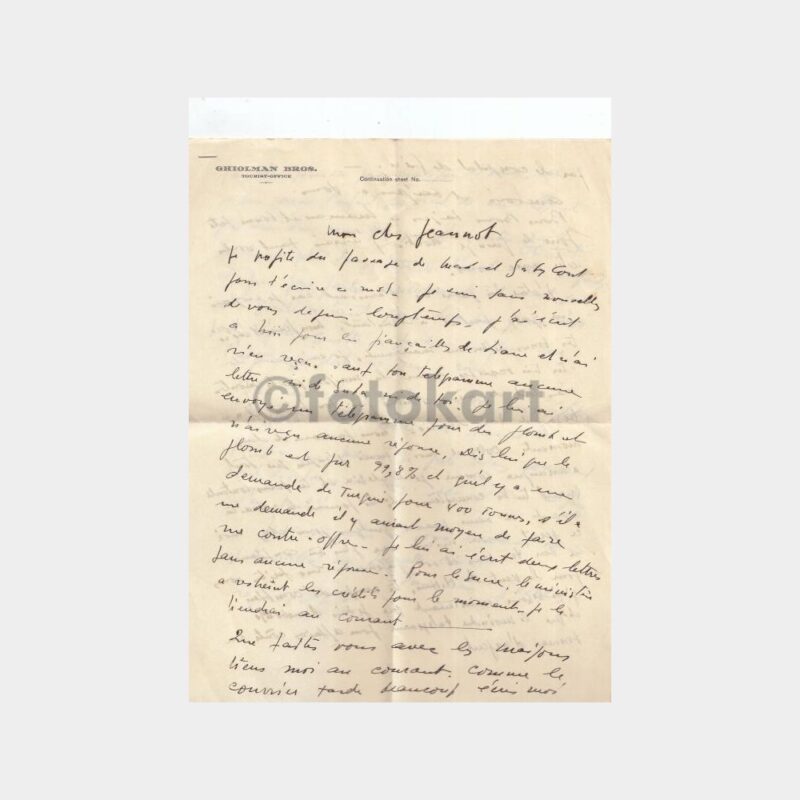 GHIOLMAN BROS.
TOURIST-OFFICE
Continuation sheet No.
Mon cher Jeannot
Je profite du passage de et Gaby
pour t'écrire ce mot. Je suis sans nouvelles
de vous depuis longtemps. J'ai écrit
a pour les fiançailles de Liane et n'ai
rien reçu sauf ton telegramme aucune
lettre ni de ni de toi. Je lui ai
envoyé un telegramme pour du plomb et
n'ai reçu aucune réponse. Dis lui que le
plomb est pur 99,8% et qu'il y a une
demande de Turquie pour 400 tonnes, s'il a
une demande il y aurait moyen de faire
une contre-offre. Je lui ai écrit deux lettres
sans aucune réponse. Pour le sucre, le ministère
a restreint les crédits pour le moment. Je te
tiendrai au courant
Que faites vous avec les maisons
tiens moi au courant. Comme le
courrier tarde beaucoup écris moi
©fotokart